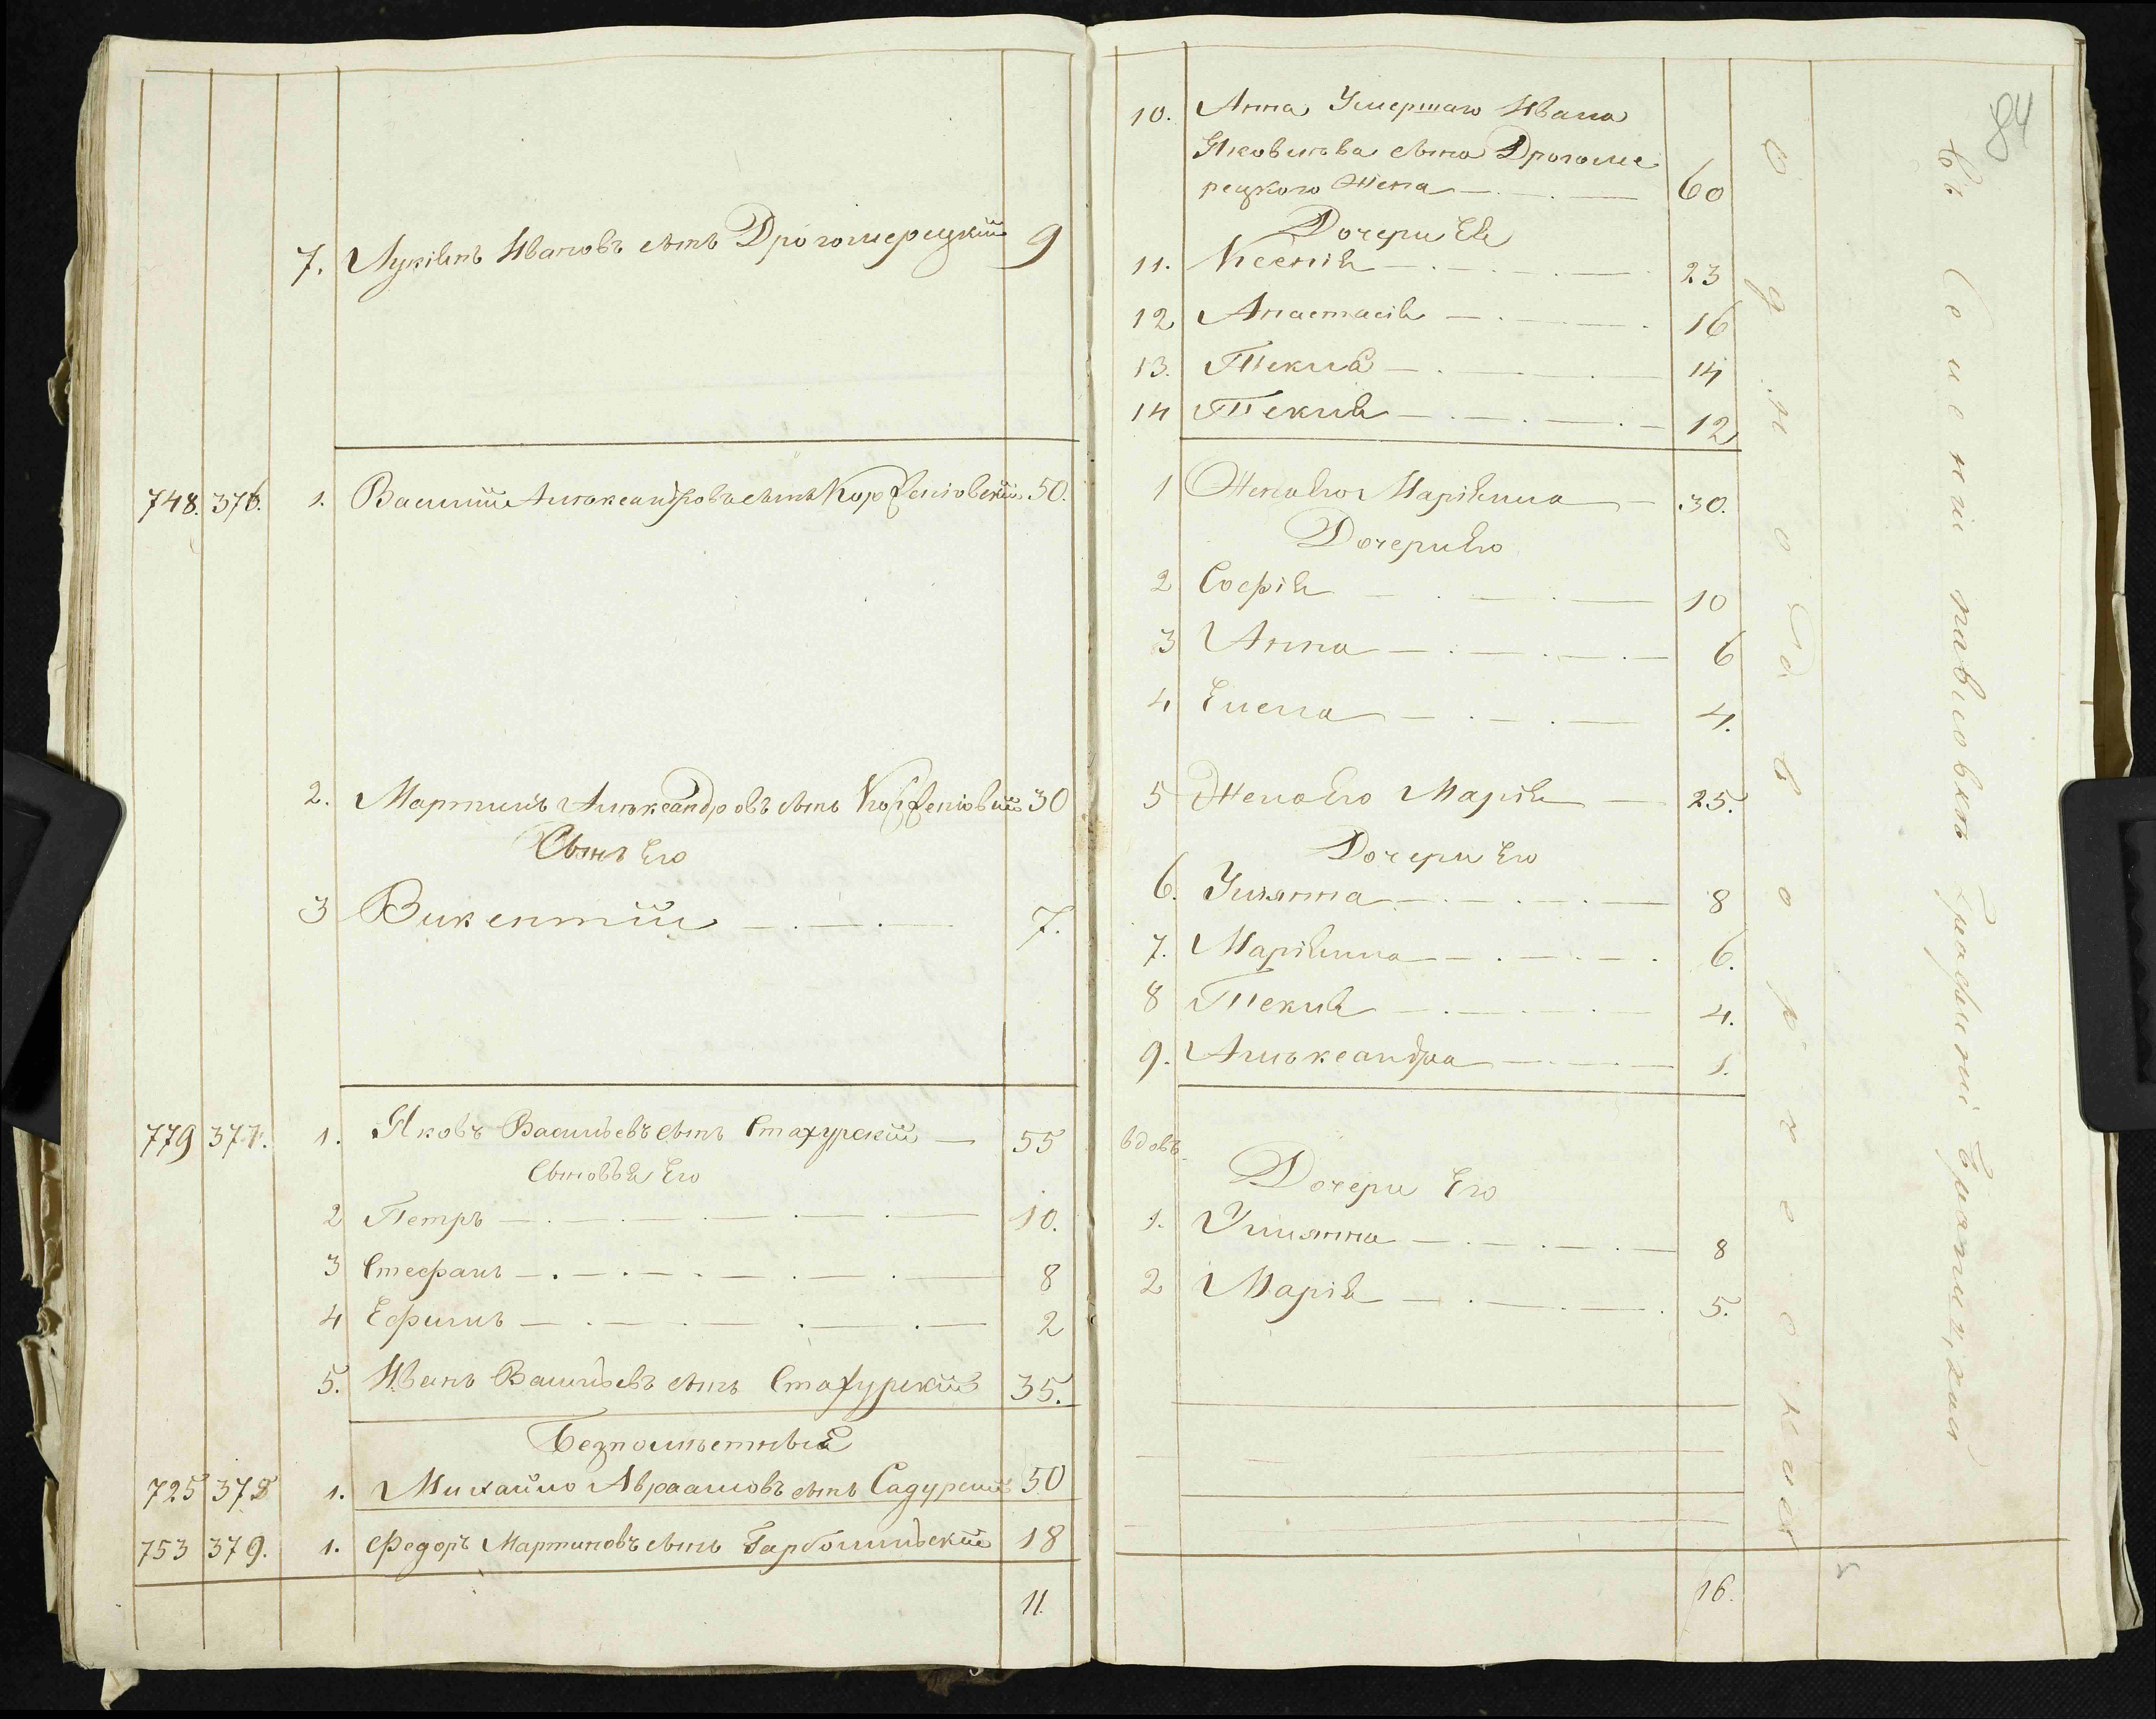 7. Лукіянъ Ивановъ сынъ Дрогомерецкій 9
748. 376. 1. Василій Александровъ сынъ 50.
2. Мартинъ Александровъ сынъ 30
Сынъ Его
3 Викентій 7.
779 377. 1. Яковъ Васильевъ сынъ Стахурскій 55
Сыновья Его
2 Петръ 10.
3 Стефанъ 8
4 Ефимъ 2
5. Иванъ Васильевъ сынъ Стахурскій 35.
Безпоместныя
725 378 1. Михайло Авраамовъ сынъ Садурскій 50
753 379. 1. Федоръ Мартиновъ сынъ 18
11.
84
10. Анна Умершаго Ивана
Яковлева сына Дрогоме
рецкого Жена 60
Дочери Ея
11. Ксенія 23
12 Анастасія 16
13. Текля 14
14 Текля 12
1 Жена Его Маріянна 30.
Дочери Его
2 Софія 10
3 Анна 6
4 Елена 4.
5 Жена Его Марія 25.
Дочери Его
6. Ульянна 8
7. Маріянна 6.
8 Текля 4.
9. Александра 1.
вдовъ
Дочери Его
1. Ульянна 8
2 Марія 5.
16.
однодворческия